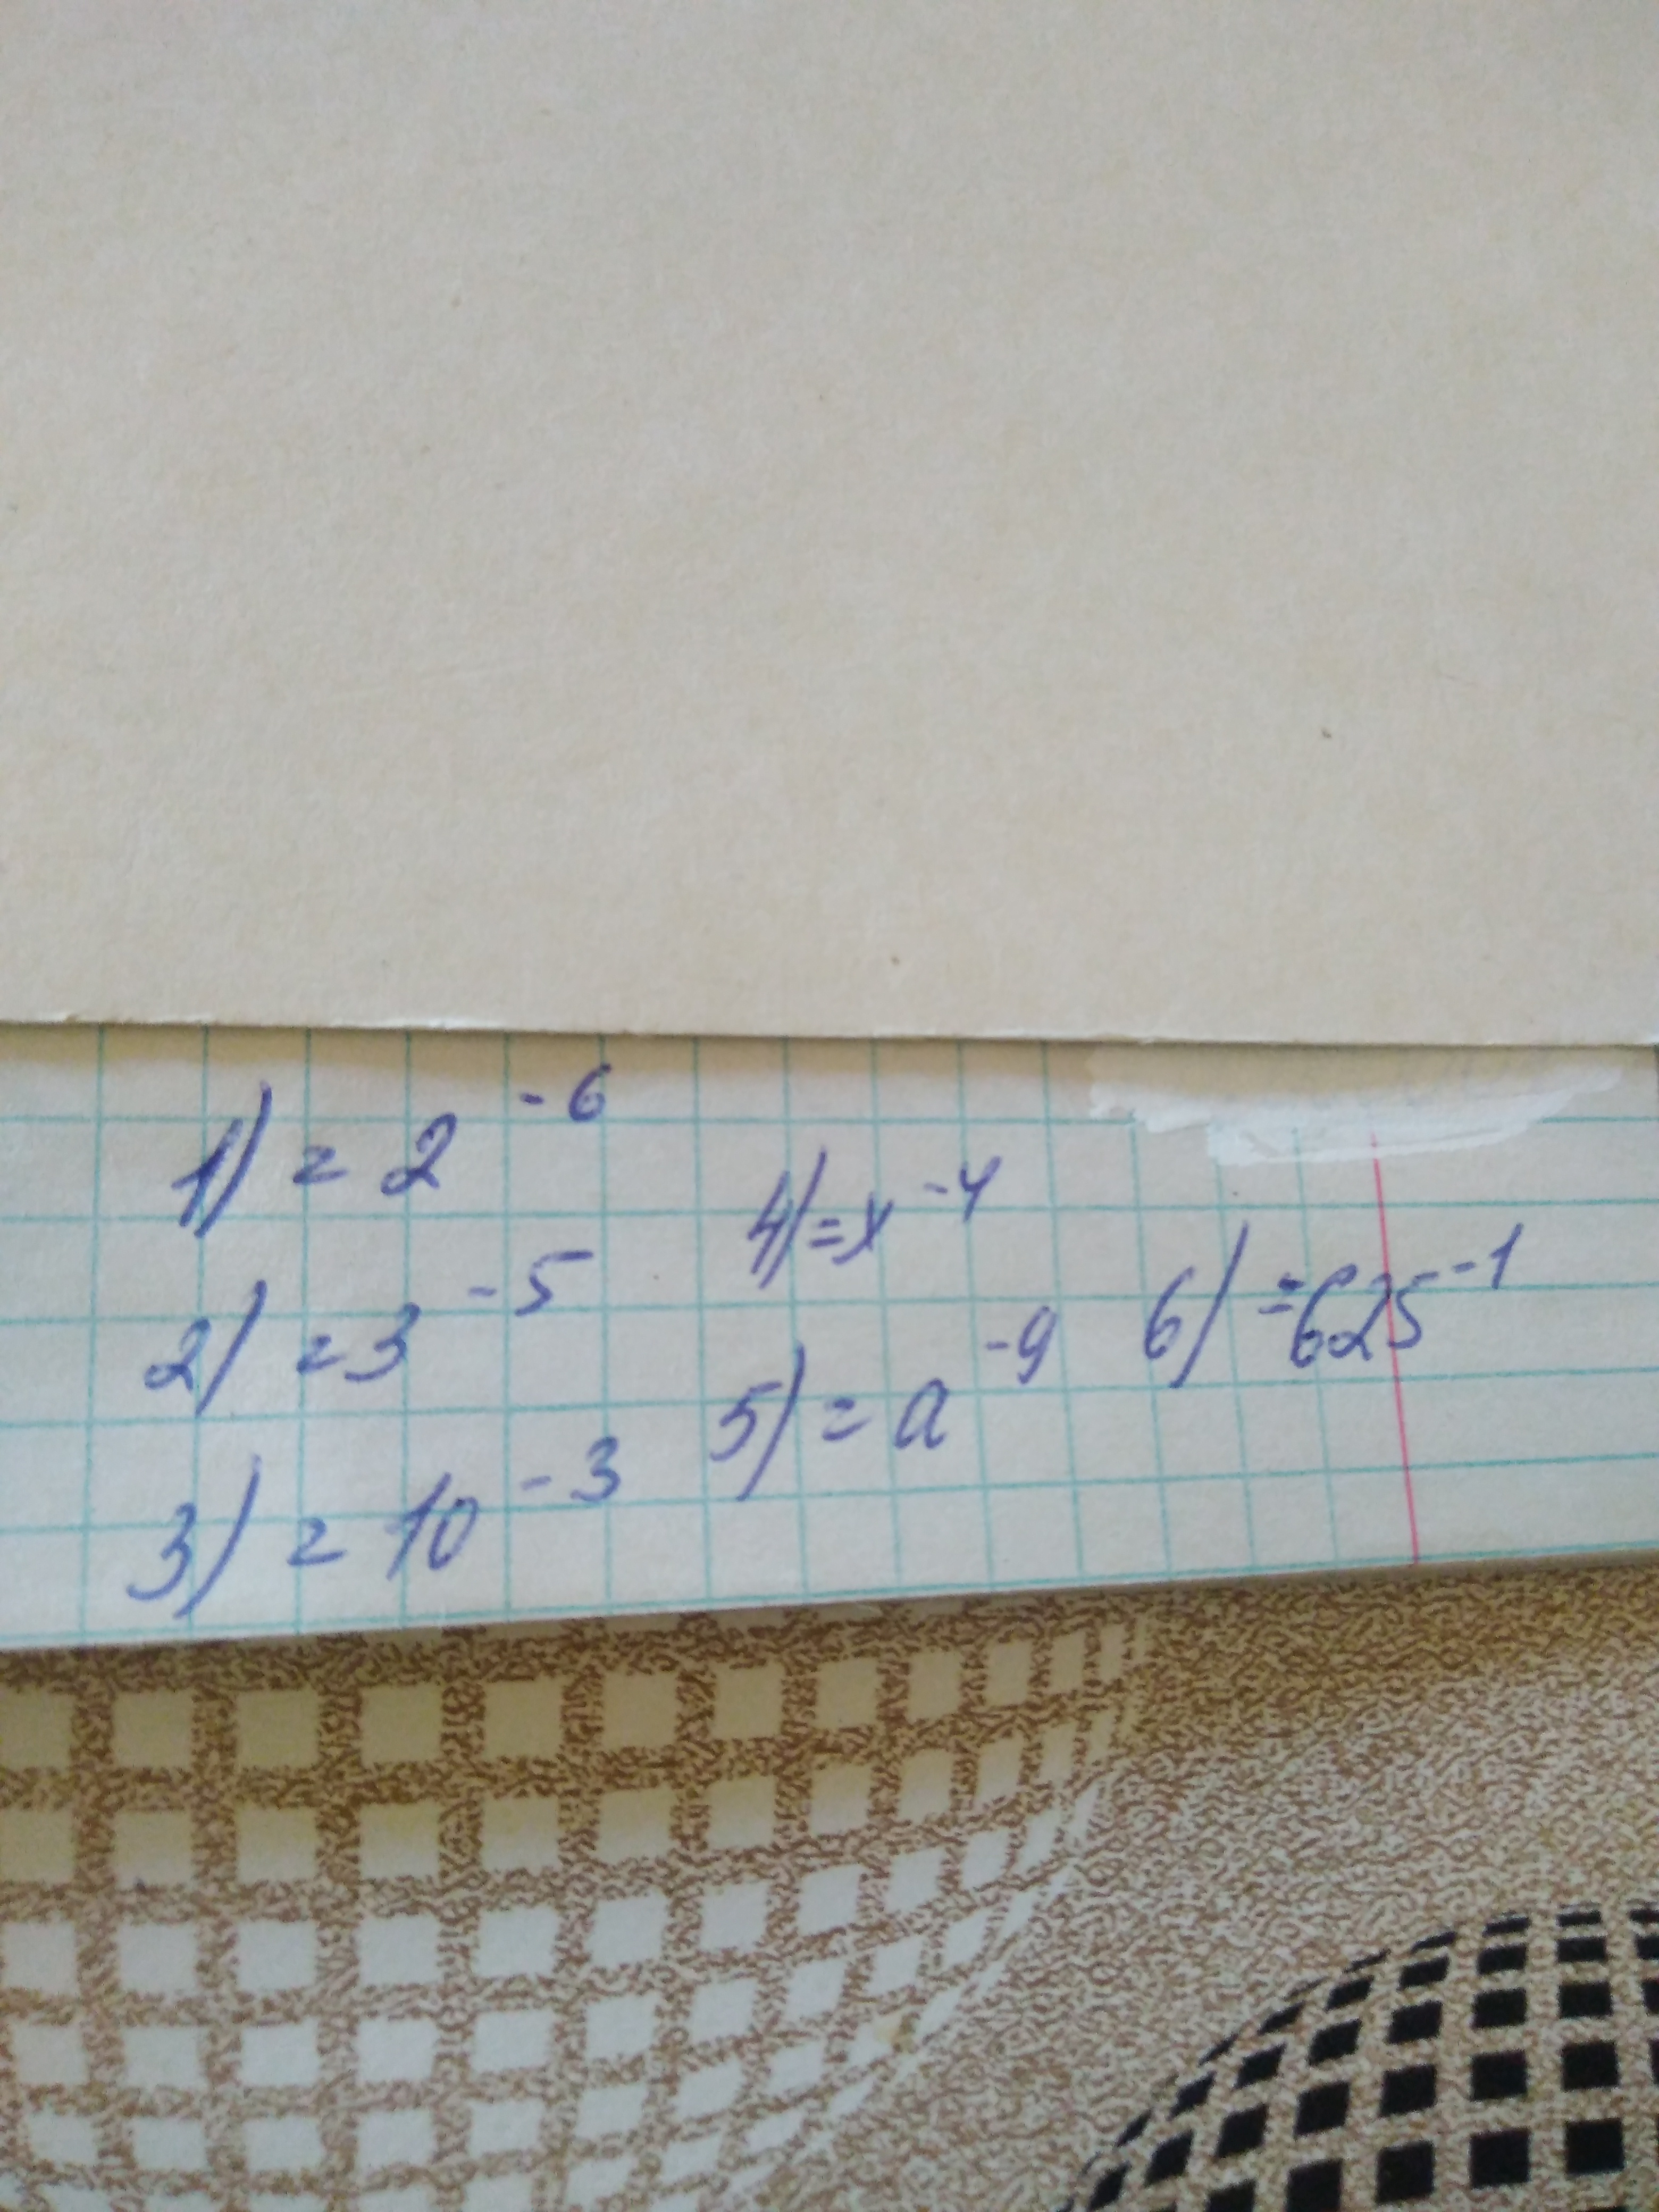 1) = 2^-6
2) = 3^-5
3) = 10^-3
4) = x^-4
5) = a^-9
6) = 625^-1